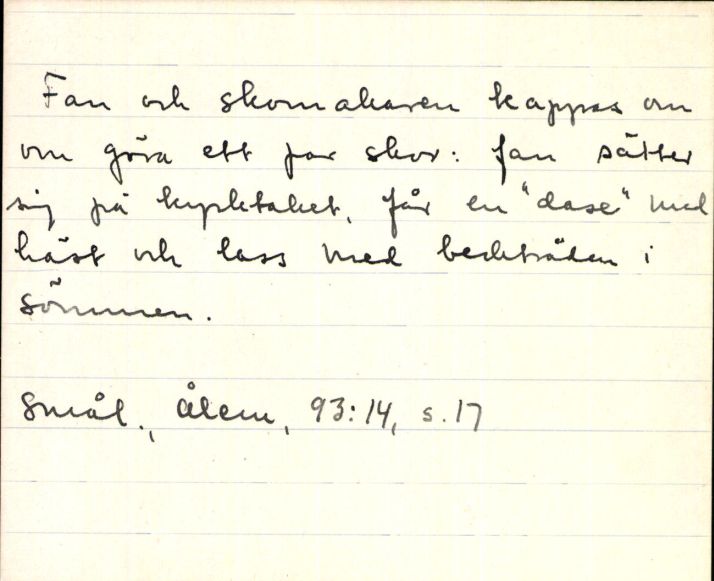 Fan och skomakaren kappas om
om göra ett par skor: fan sätter
sig på kyrktaket, får en "dase" med
häst och lass med becktråden i
sömmen.
Smål., Ålem, 93:14, s.17